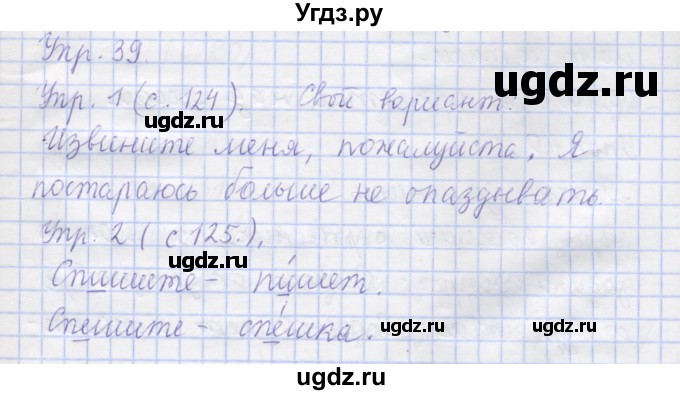 Угдз.ру
Упр. 39.
ugdz.ru
Упр. 1 (с. 124). Свой вариант:
ugdz.ru
Извините меня, пожалуйста. Я
постараюсь больше не опаздывать.
Упр. 2 (с 125.).
ugdz.ru
ugdz.ru
Спишите – пи́шет.
Спешите – спе́шка.
ugdz.ru
ugdz.ru
ugdz.ru